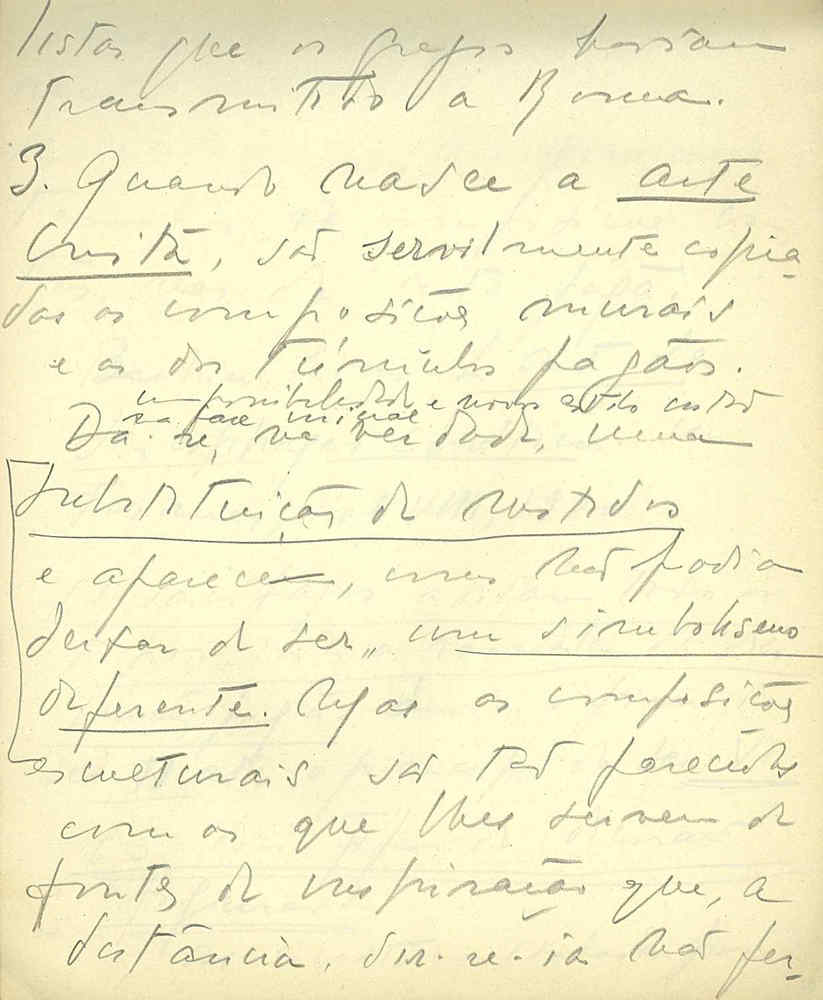 listas que os gregos haviam
transmitido a Roma.
3. Quando nasce a arte
Cristã, são servilmente copia-
das as composições murais
e as dos túmulos pagãos.
impossibilidade e novos
na fase inicial
Dá-se, na verdade, uma
substituição de vestidos
e aparece, como não podia
deixar de ser, um simbolismo
diferente. Mas as composições
esculturais são tão parecidas
com as que lhes servem de
fontes de inspiração que, a
distância, dir-se-ia não per-